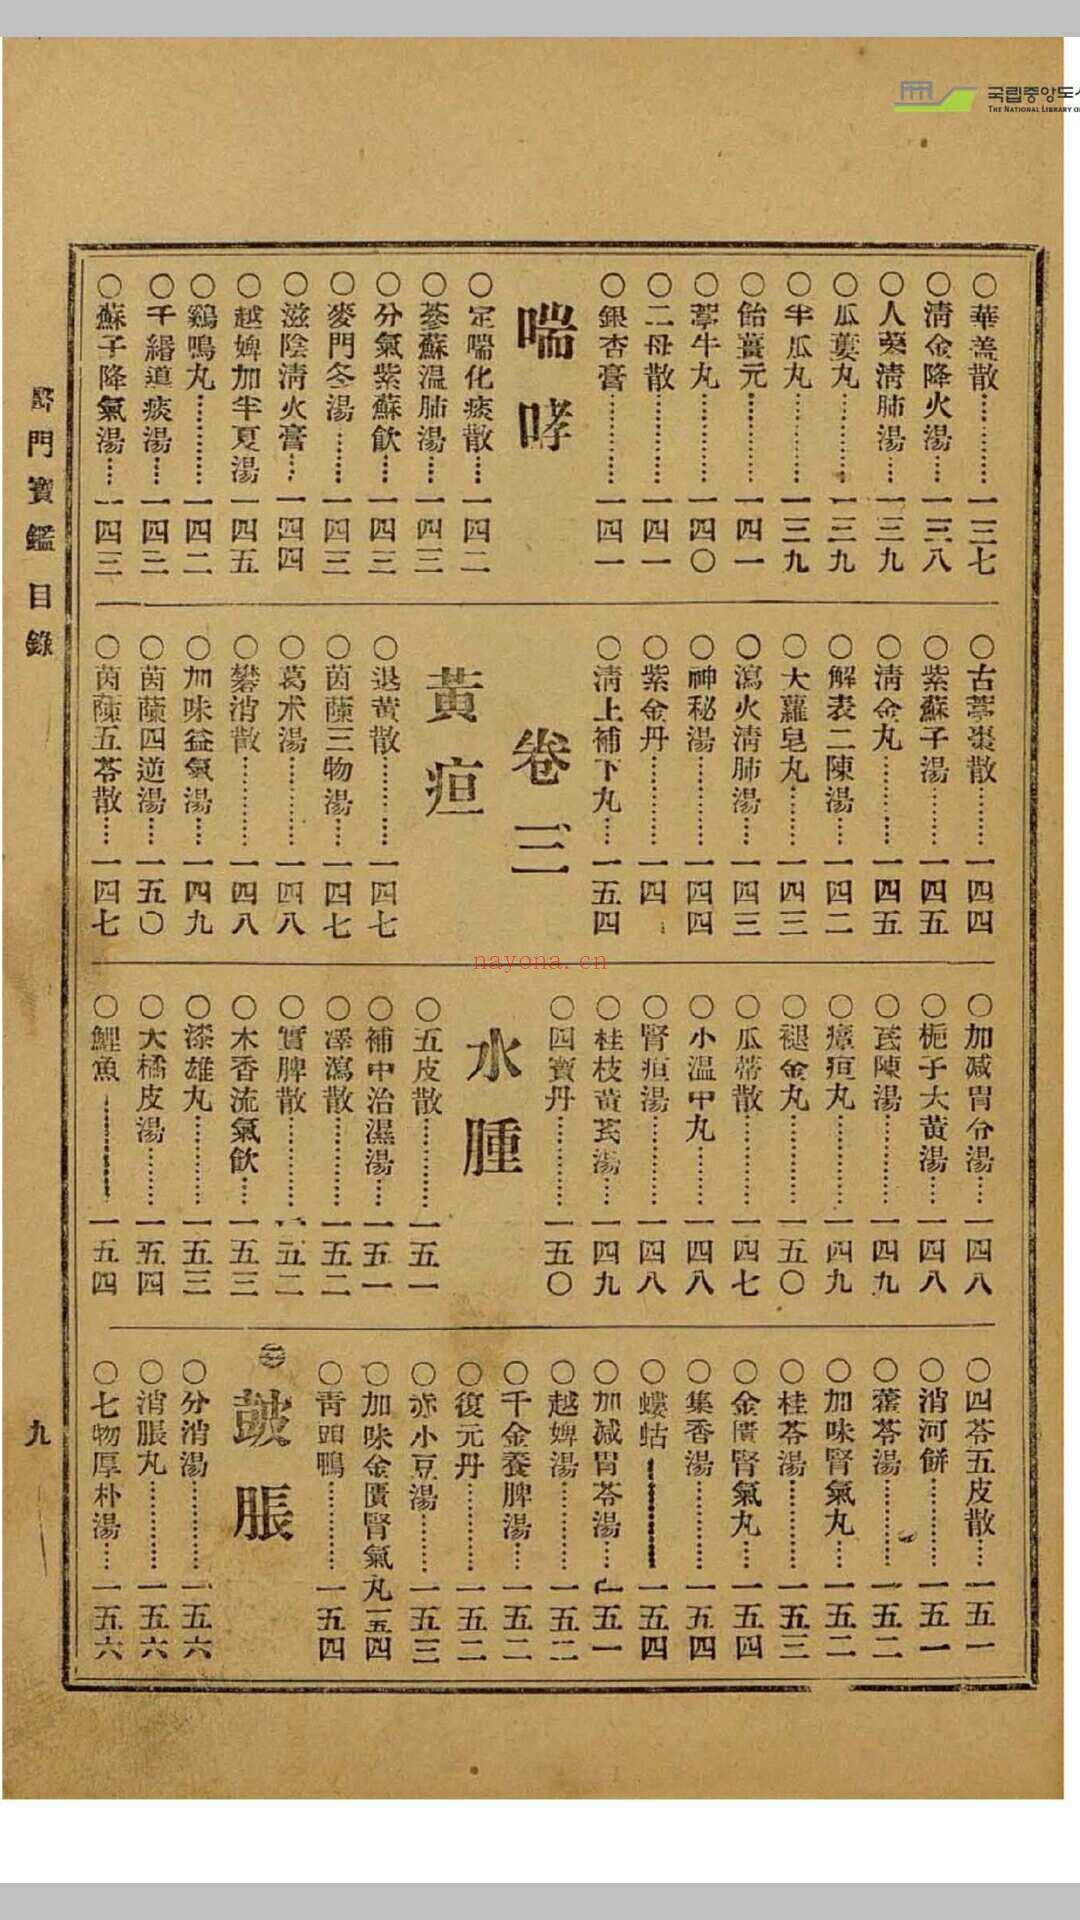 국립중앙도서
THE NATIONAL LIBRARY O
醫門寶鑑 目錄
九
○華蓋散…………一三七
○淸金降火湯……一三八
○人蔘淸肺湯……一三九
○瓜蔞丸…………一三九
○半瓜丸…………一三九
○飴薑元…………一四一
○葶牛丸…………一四〇
○二母散…………一四一
○銀杏膏…………一四一
喘哮
○定喘化痰散……一四二
○蔘蘇溫肺湯……一四三
○分氣紫蘇飮……一四三
○麥門冬湯………一四三
○滋陰淸火膏……一四四
○越婢加半夏湯一四五
○鷄鳴丸…………一四二
○千緡道痰湯……一四三
○蘇子降氣湯……一四三
○古葶棗散………一四四
○紫蘇子湯………一四五
○淸金丸…………一四五
○解表二陳湯……一四二
○大蘿皂丸………一四三
○瀉火淸肺湯……一四三
○神秘湯…………一四四
○紫金丹…………一四
○淸上補下丸……一五四
卷三
黃疸
○退黃散…………一四七
○茵蔯三物湯……一四七
○葛朮湯…………一四八
○礬消散…………一四八
○加味益氣湯……一四九
○茵蔯四逆湯……一五〇
○茵蔯五苓散……一四七
○加减胃苓湯……一四八
○梔子大黃湯……一四八
○芪陳湯…………一四九
○瘴疸丸…………一四九
○褪金丸…………一五〇
○瓜蒂散…………一四七
○小溫中丸………一四八
○腎疸湯…………一四八
○桂枝黃芪湯……一四九
○四寶丹…………一五〇
水腫
○五皮散…………一五一
○補中治濕湯……一五一
○澤瀉散…………一五二
○實脾散…………一五二
○木香流氣飮……一五三
○漆雄丸…………一五三
○大橘皮湯………一五四
○鯉魚……………一五四
○四苓五皮散……一五一
○消河餠…………一五一
○藿苓湯…………一五二
○加味腎氣丸……一五二
○桂苓湯…………一五三
○金匱腎氣丸……一五四
○集香湯…………一五四
○螻蛄……………一五四
○加减胃苓湯……一五一
○越婢湯…………一五二
○千金養脾湯……一五二
○復元丹…………一五二
○赤小豆湯………一五三
○加味金匱腎氣丸一五四
○靑頭鴨…………一五四
皷脹
○分消湯…………一五六
○消脹丸…………一五六
○七物厚朴湯……一五六
nayona.cn